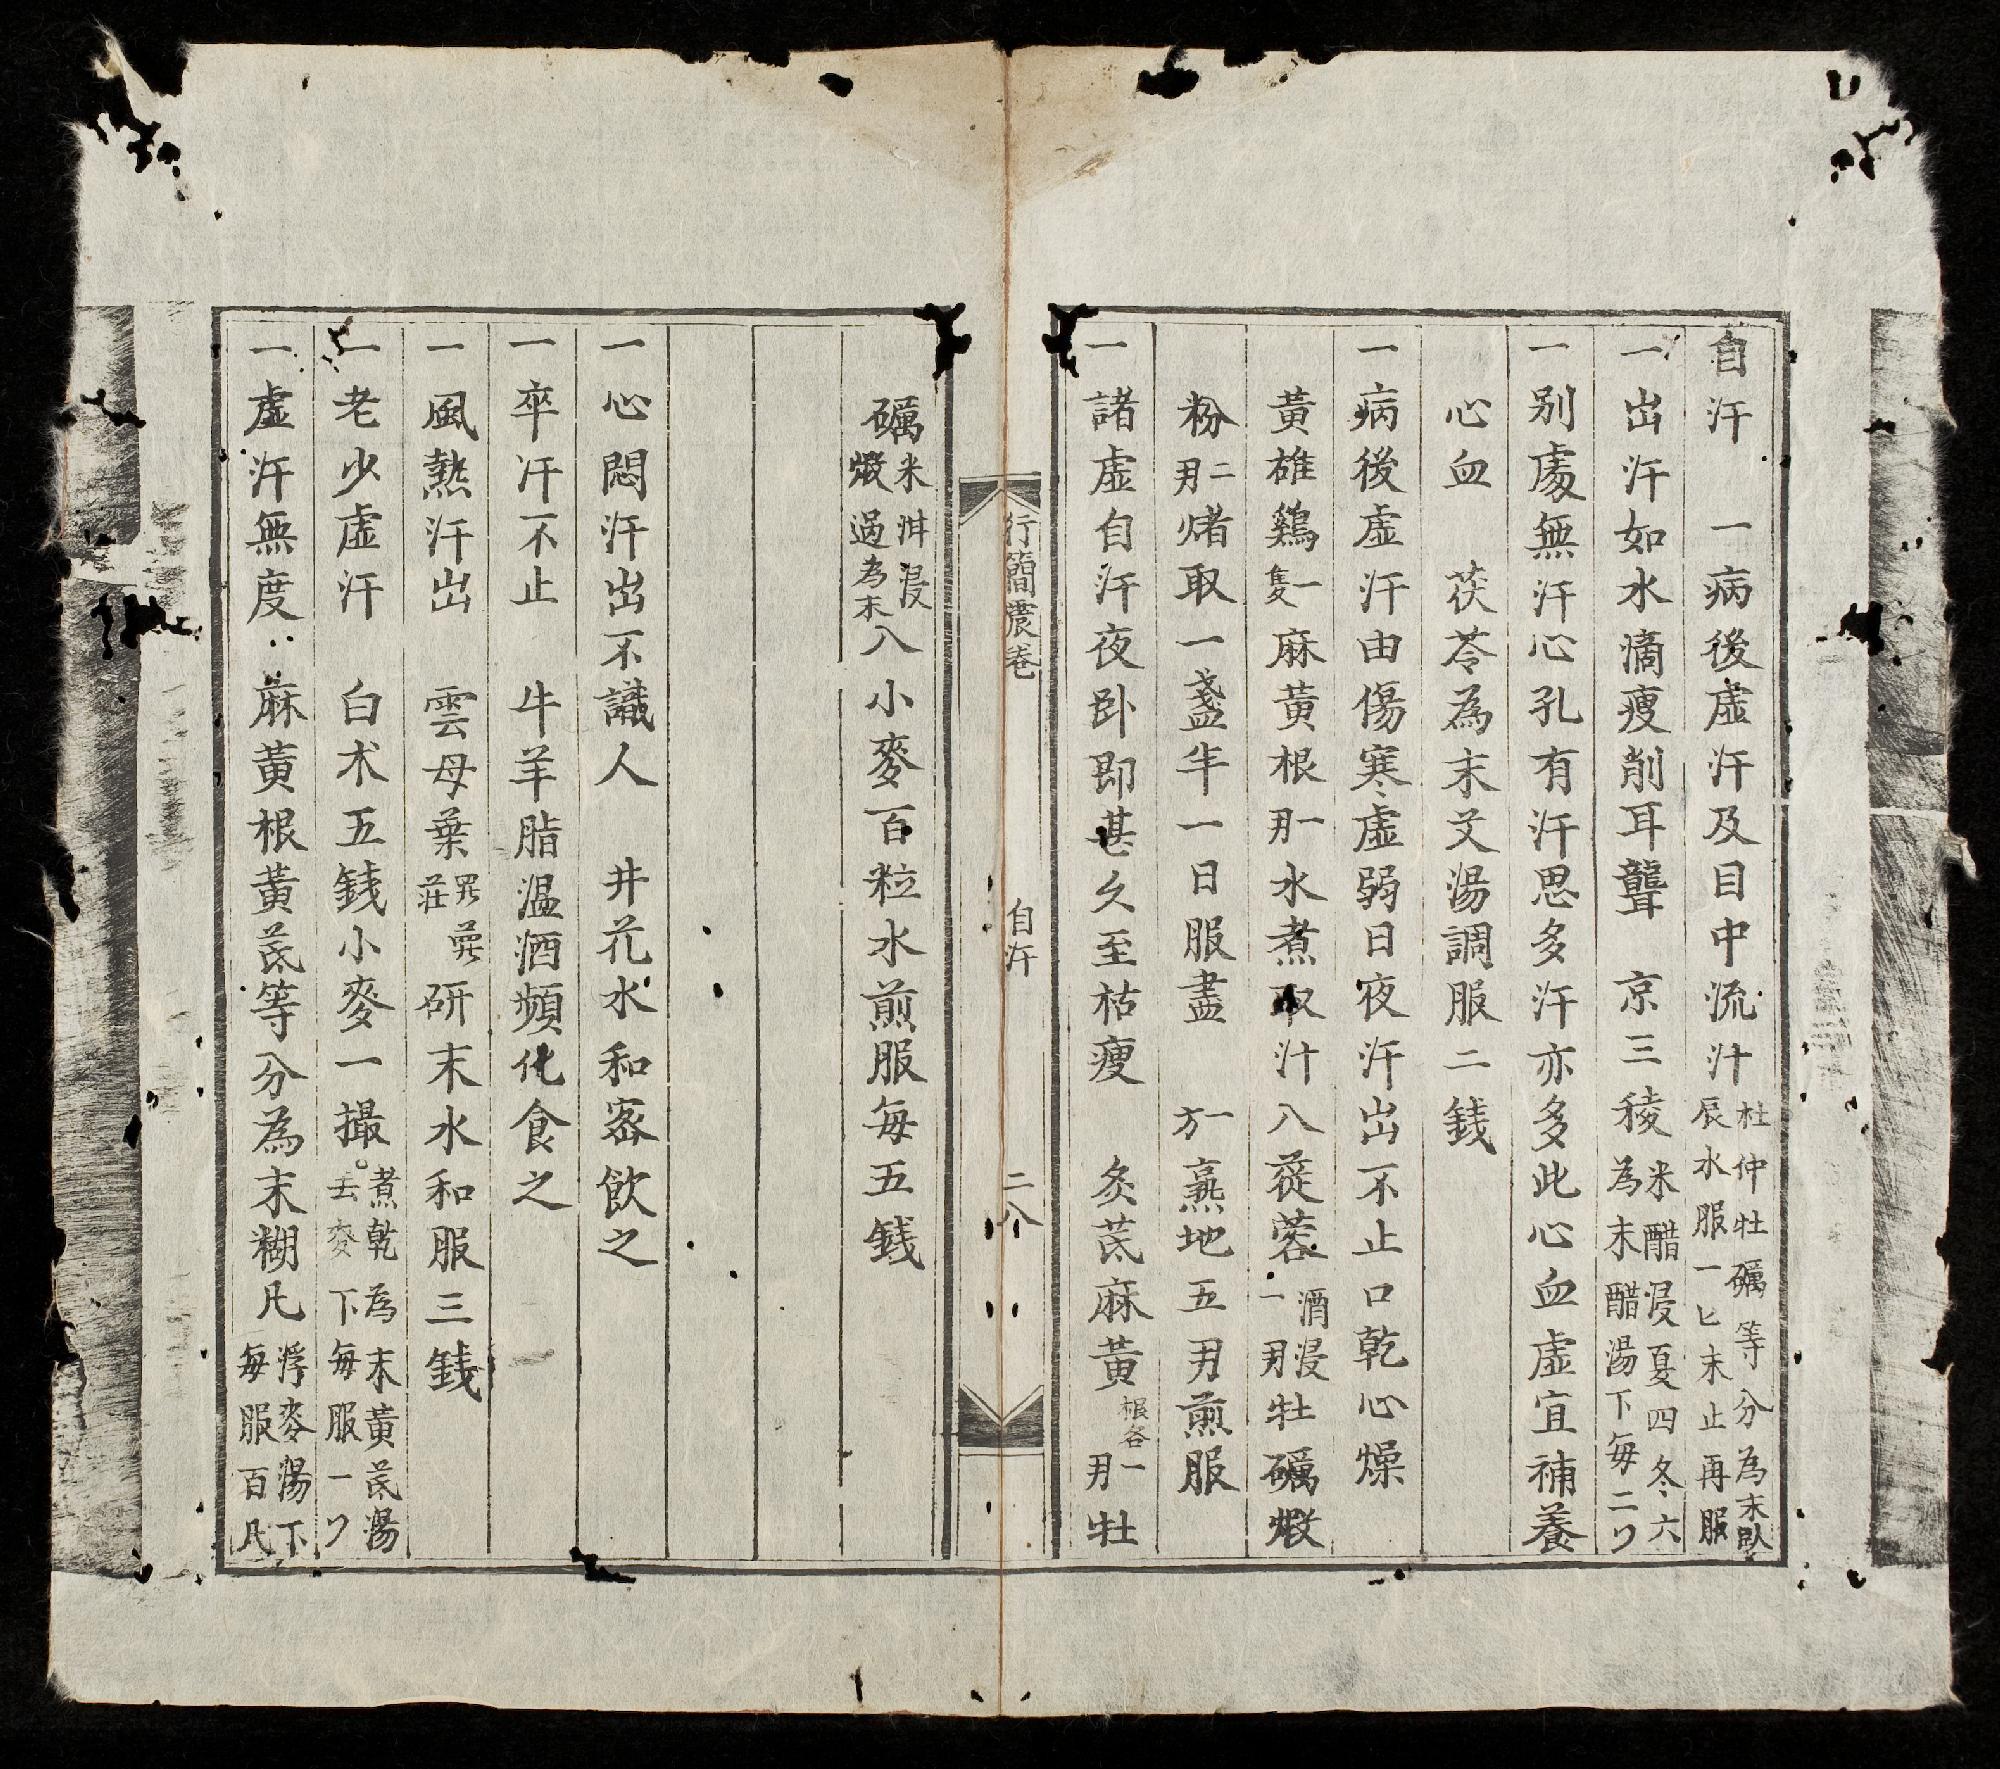 自汗 一病後虛汗及目中流汁杜仲牡礪等分為末臥辰水服一匕末止再服
一出汗如水滴瘦削耳聾 京三稜米醋浸夏四冬六為末醋湯下每二フ
一別處無汗心孔有汗思多汗亦多此心血虛宜補養
心血 茯苓為末艾湯調服二錢
一病後虛汗由傷寒虛弱日夜汗出不止口乾心燥
黃雄鷄一隻麻黃根一刄水煮取汁入蓯蓉酒浸一刄牡礪煅
粉二刄煮取一盞半一日服盡 一方 熟地五刄煎服
一諸虛自汗夜卧即甚久至枯瘦 炙芪麻黃根各一刄牡
行簡震卷 自汗 二八
礪米泔浸煅過為末入小麥百粒水煎服每五錢
一心悶汗出不識人 井花水和蜜飲之
一卒汗不止 牛羊脂温酒頻化食之
一風熱汗出 雲母葉研末水和服三錢
一老少虛汗 白术五錢小麥一撮煮乾去麥為末黃芪湯下每服一フ
一虛汗無度 麻黃根黃芪等分為末糊凡浮麥湯下每服百凡